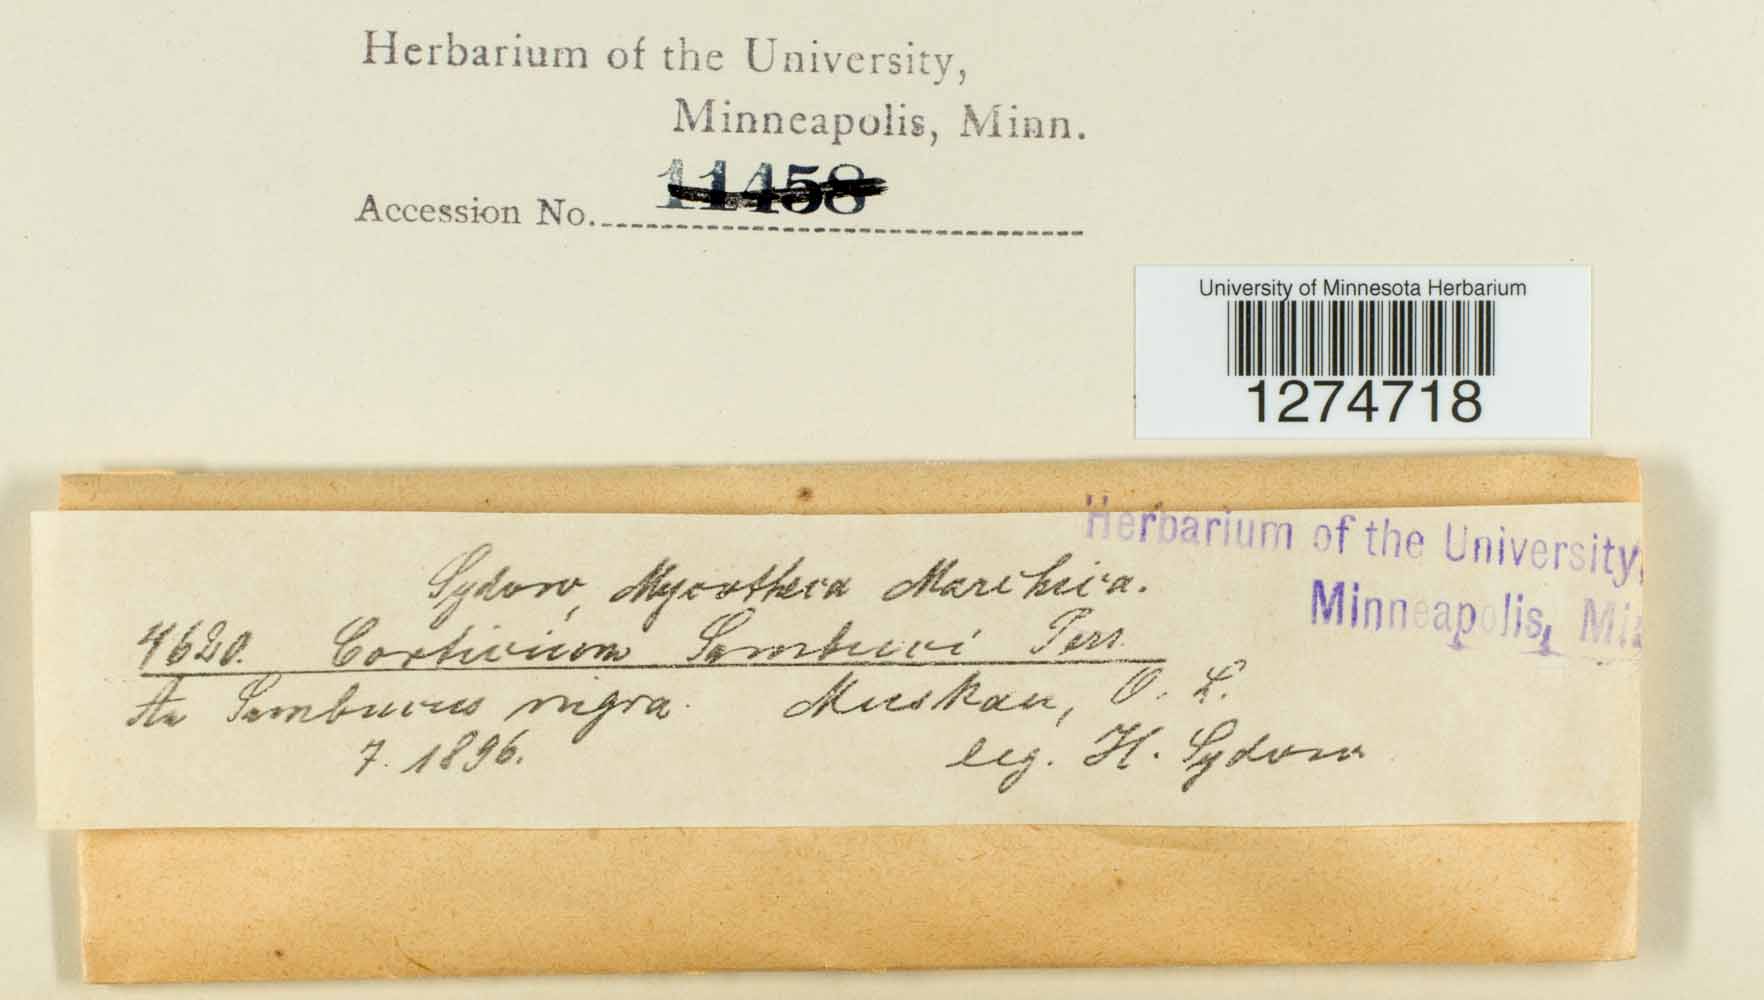 Herbarium of the University,
Minneapolis, Minn.
Accession No. 11458
University of Minnesota Herbarium
1274718
Herbarium of the University,
Minneapolis, Mi
Sydow, Mycotheca Marchica.
4620. Corticium Sambuci Pers.
An Sambucus nigra. Muskau, O. L.
7. 1896. leg. H. Sydow